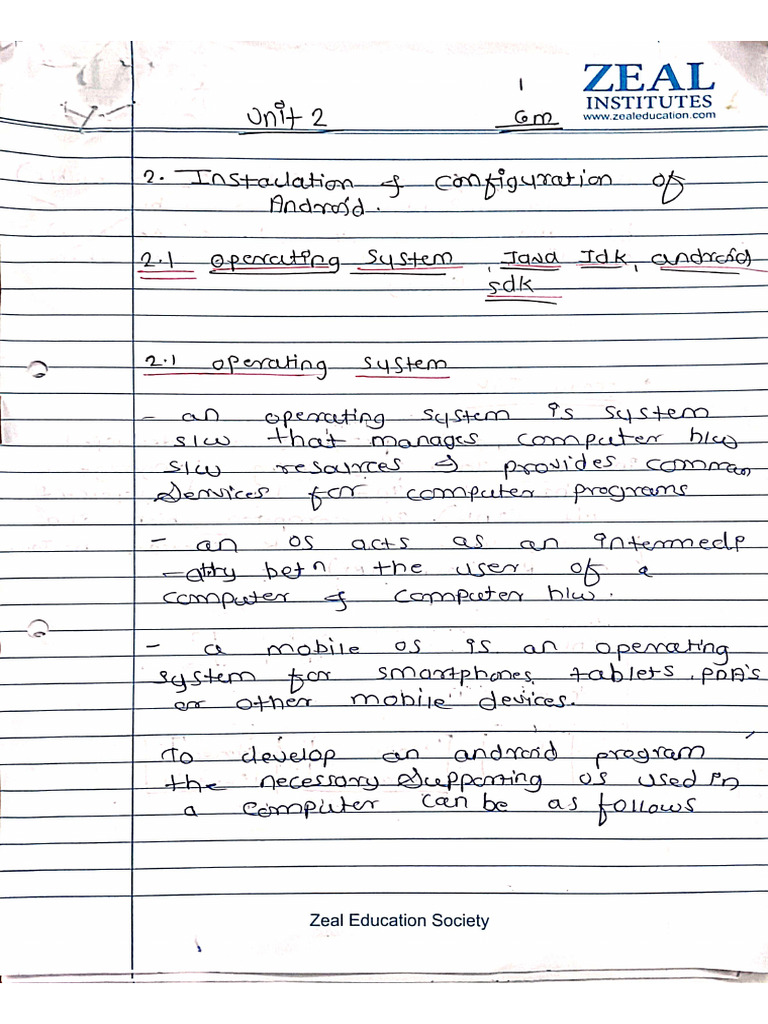 ZEAL
INSTITUTES
www.zealeducation.com
1
Unit 2 6m
2. Instaclation & configuration of
Android.
2.1 operating system, Java Jdk, android
sdk
2.1 operating system
- an operating system is system
s/w that manages computer h/w
s/w resources & provides common
services for computer programs
- an os acts as an intermedi
-atry betn the user of a
computer & computer h/w.
- a mobile os is an operating
system for smartphones, tablets, PDA's
or other mobile devices.
To develop an android program
the necessary supporting os used in
a computer can be as follows
Zeal Education Society